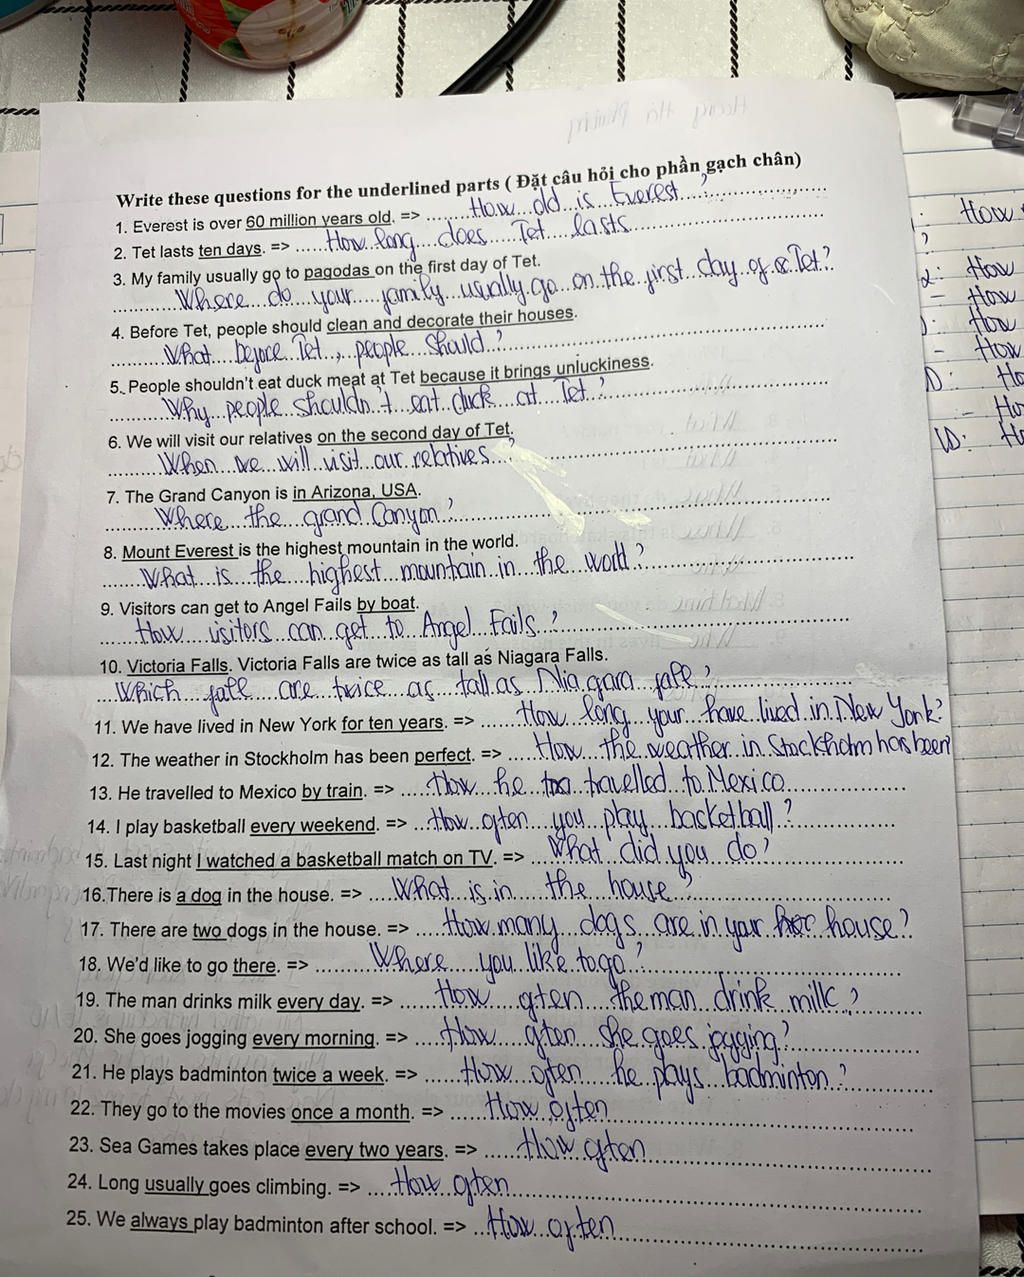 Hoang Hà Phương
Write these questions for the underlined parts ( Đặt câu hỏi cho phần gạch chân)
1. Everest is over 60 million years old. => ...... How old is Everest ?
2. Tet lasts ten days. => ...... How long does Tet lasts
3. My family usually go to pagodas on the first day of Tet.
Where do your family usually go on the first day of Tet?
4. Before Tet, people should clean and decorate their houses.
What before Tet, people should ?
5. People shouldn't eat duck meat at Tet because it brings unluckiness.
Why people shouldn't eat duck at Tet ?
6. We will visit our relatives on the second day of Tet.
When we will visit our relatives ?
7. The Grand Canyon is in Arizona, USA.
Where the grand Canyon ?
8. Mount Everest is the highest mountain in the world.
What is the highest mountain in the world ?
9. Visitors can get to Angel Fails by boat.
How visitors can get to Angel Fails ?
10. Victoria Falls. Victoria Falls are twice as tall as Niagara Falls.
Which fall are twice as tall as Niagara fall ?
11. We have lived in New York for ten years. => ...... How long your have lived in New York?
12. The weather in Stockholm has been perfect. => ...... How the weather in Stockholm has been?
13. He travelled to Mexico by train. => ...... How he travelled to Mexico
14. I play basketball every weekend. => ...... How often you play basketball ?
15. Last night I watched a basketball match on TV. => ...... What did you do ?
16.There is a dog in the house. => ...... What is in the house ?
17. There are two dogs in the house. => ...... How many dogs are in your house ?
18. We'd like to go there. => ...... Where you like to go ?
19. The man drinks milk every day. => ...... How often the man drink milk ?
20. She goes jogging every morning. => ...... How often she goes jogging ?
21. He plays badminton twice a week. => ...... How often he plays badminton ?
22. They go to the movies once a month. => ...... How often
23. Sea Games takes place every two years. => ...... How often
24. Long usually goes climbing. => ...... How often
25. We always play badminton after school. => ...... How often
How
?
2: How
- How
How
- How
D: Ho
- Ho
Ho